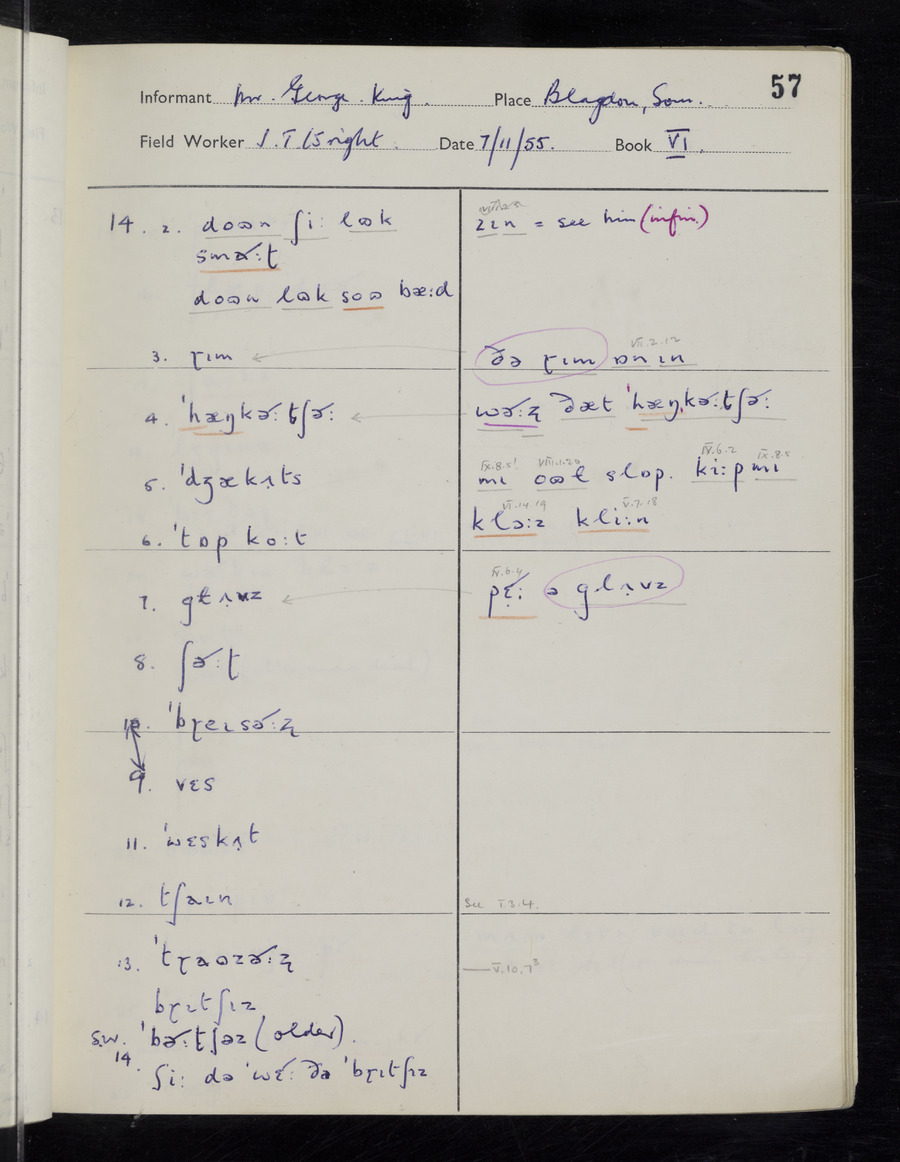 57
Informant Mr. George King. Place Blagdon, Som.
Field Worker J.T. Wright. Date 7/11/55. Book VI.
14. 2. doʊn ʃiː lʊk
smɚːʈ
doʊn lʊk soʊ bæːd
3. ɽɪm
4. ˈhæŋkɚːtʃɚː
5. ˈdʒækʌ̣ts
6. ˈtɒp koːt
7. gɫʌ̣vz
8. ʃɚːʈ
10. ˈbɽeɪsɚːʐ
9. vɛs
11. ˈwɛskʌ̣t
12. tʃaɪn
13. ˈtɽaʊzɚːʐ
bɽɪtʃɪz
s.w. ˈbɚːʈʃəz (older).
14. ʃiː də ˈwɛ́ː ðə ˈbɽɪtʃɪz
zɪn = see him (infin.)
VII.2.12
ðə ɽɪm ɒn ɪn
wɚːʐ ðæt ˈhæŋkɚːtʃɚː
IX.8.5 VIII.1.20 IV.6.2 IX.8.5
mɪ oʊɫ slɒp. kiːp mɪ
VI.14.19 V.7.18
klɔːz kliːn
IV.6.4
pɛ́ː ə glʌ̣vz
See I.3.4.
V.10.7